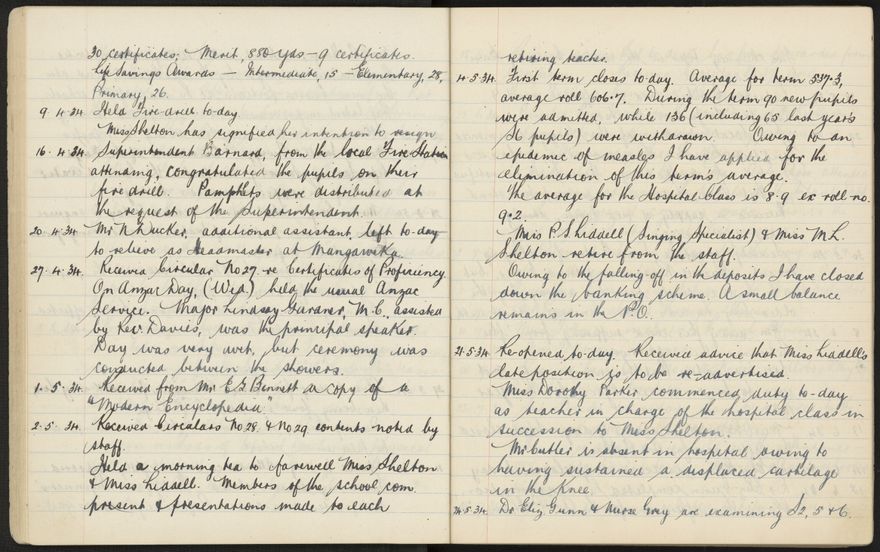 30 certificates; Merit, 880 yds — 9 certificates.
Life Savings Awards — Intermediate, 15 — Elementary, 28,
Primary, 26.
9. 4.34. Held Fire-drill to-day.
Miss Shelton has signified her intention to resign
16. 4.34. Superintendent Barnard, from the local Fire Station
attending, congratulated the pupils on their
fire drill. Pamphlets were distributed at
the request of the Superintendent.
20. 4.34 Mr N. Ducker, additional assistant left to-day
to relieve as Headmaster at Mangaweka.
27. 4.34. Received Circular No 27 - re Certificates of Proficiency.
On Anzac Day, (Wed) held the usual Anzac
Service. Major Lindsay Garner, M.C., assisted
by Rev. Davies, was the principal speaker.
Day was very wet, but ceremony was
conducted between the showers.
1. 5.34. Received from Mr E G Bennett a copy of a
"Modern Encyclopedia"
2.5. 34. Received Circulars No 28. & No 29 contents noted by
staff.
Held a morning tea to farewell Miss Shelton
& Miss Liddell. Members of the school com.
present & presentations made to each
retiring teacher.
4.5.34. First term closes to-day. Average for term 537.3,
average roll 606.7. During the term 90 new pupils
were admitted, while 136 (including 65 last year's
S6 pupils) were withdrawn. Owing to an
epidemic of measles I have applied for the
elimination of this term's average.
The average for the Hospital Class is 8.9 ex roll no.
9.2.
Miss P. S. Liddell (Singing Specialist) & Miss M L.
Shelton retire from the staff.
Owing to the falling-off in the deposits I have closed
down the banking scheme. A small balance
remains in the P.O.
21.5.34. Re-opened to-day. Received advice that Miss Liddell's
late position is to be re-advertised.
Miss Dorothy Parker commenced duty to-day
as teacher in charge of the hospital class in
succession to Miss Shelton.
Mr Cutler is absent in hospital owing to
having sustained a displaced cartilage
in the knee
24.5.34. Dr Eliz Gunn & Nurse Grey are examining S2, 5 & 6.